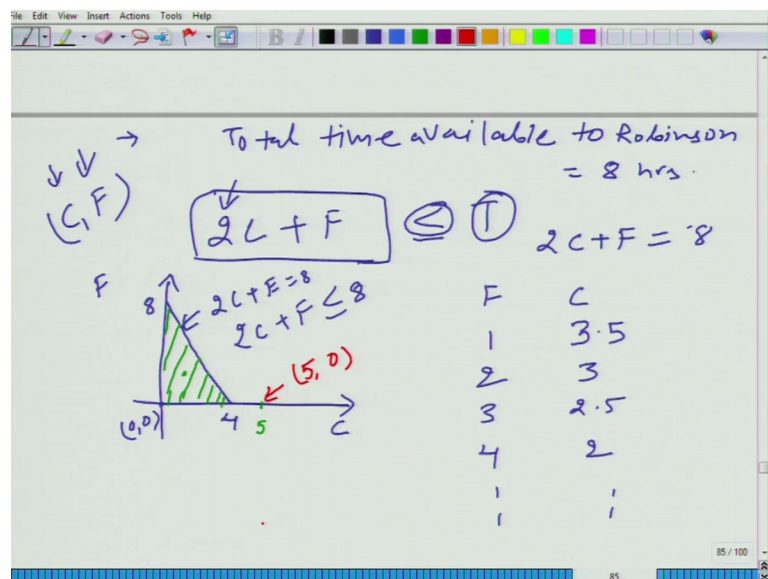 File Edit View Insert Actions Tools Help
B I
→ Total time available to Robinson
= 8 hrs.
(C, F)
2C + F ≤ T
2C + F = 8
F
8
2C + F = 8
2C + F ≤ 8
(5, 0)
(0,0)
4
5
C
F C
1 3.5
2 3
3 2.5
4 2
85 / 100
85